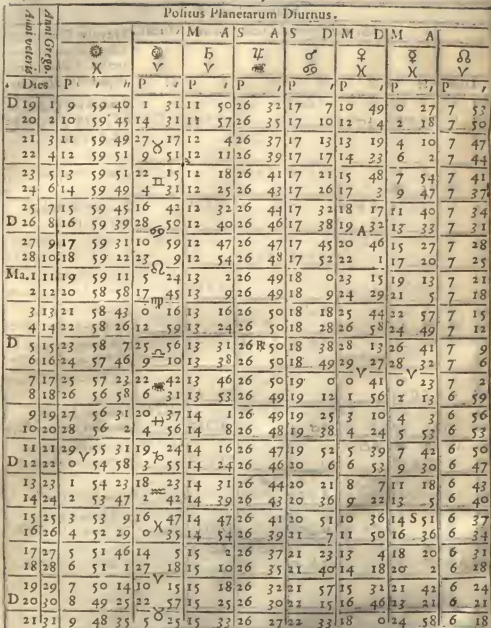 Positus Planetarum Diurnus.
Anni veteris Anni Grego. M A S A S D M D M A
☉ ☽ ♄ ♃ ♂ ♀ ☿ ☊
♓ ♈ ♈ ♋ ♓ ♓ ♈
Dies P P P P P P P P
D 19 1 9 59 40 1 31 11 50 26 32 17 7 10 49 0 27 7 53
20 2 10 59 45 14 31 11 57 26 35 17 10 12 4 2 18 7 50
21 3 11 59 49 27 ♉ 17 12 4 26 37 17 13 13 19 4 10 7 47
22 4 12 59 51 9 51 12 11 26 39 17 17 14 33 6 2 7 44
23 5 13 59 51 22 ♊ 15 12 18 26 41 17 21 15 48 7 54 7 41
24 6 14 59 49 4 31 12 25 26 43 17 26 17 3 9 47 7 37
25 7 15 59 45 16 42 12 32 26 44 17 32 18 17 11 40 7 34
D 26 8 16 59 39 28 ♋ 50 12 40 26 46 17 38 19 A 32 13 33 7 31
27 9 17 59 31 10 59 12 47 26 47 17 45 20 46 15 27 7 28
28 10 18 59 22 23 ♌ 9 12 54 26 48 17 52 22 1 17 20 7 25
Ma. 1 11 19 59 11 5 24 13 2 26 49 18 0 23 15 19 13 7 21
2 12 20 58 58 17 ♍ 45 13 9 26 49 18 9 24 29 21 5 7 18
3 13 21 58 43 0 16 13 16 26 50 18 18 25 44 22 57 7 15
4 14 22 58 26 12 59 13 24 26 50 18 28 26 58 24 49 7 12
D 5 15 23 58 7 25 ♎ 56 13 31 26 ℞ 50 18 38 28 13 26 41 7 9
6 16 24 57 46 9 10 13 38 26 50 18 49 29 ♈ 27 28 ♈ 32 7 6
7 17 25 57 23 22 ♏ 42 13 46 26 50 19 0 0 41 0 23 7 2
8 18 26 56 58 6 31 13 53 26 49 19 12 1 56 2 13 6 59
9 19 27 56 31 20 ♐ 37 14 1 26 49 19 25 3 10 4 3 6 56
10 20 28 56 2 4 56 14 8 26 48 19 38 4 24 5 53 6 53
11 21 29 ♈ 55 31 19 ♑ 24 14 16 26 47 19 52 5 39 7 42 6 50
D 12 22 0 54 58 3 55 14 24 26 46 20 6 6 53 9 30 6 47
13 23 1 54 23 18 ♒ 23 14 31 26 44 20 21 8 7 11 18 6 43
14 24 2 53 47 2 42 14 39 26 43 20 36 9 22 13 5 6 40
15 25 3 53 9 16 ♓ 47 14 47 26 41 20 51 10 36 14 S 51 6 37
16 26 4 52 29 0 35 14 54 26 39 21 7 11 50 16 36 6 34
17 27 5 51 46 14 5 15 2 26 37 21 23 13 4 18 20 6 31
18 28 6 51 1 27 18 15 10 26 35 21 40 14 18 20 2 6 28
19 29 7 50 14 10 ♈ 15 15 18 26 32 21 57 15 32 21 42 6 24
D 20 30 8 49 25 22 57 15 25 26 30 22 15 16 46 23 21 6 21
21 31 9 48 35 5 ♉ 25 15 33 26 27 22 33 18 0 24 58 6 18